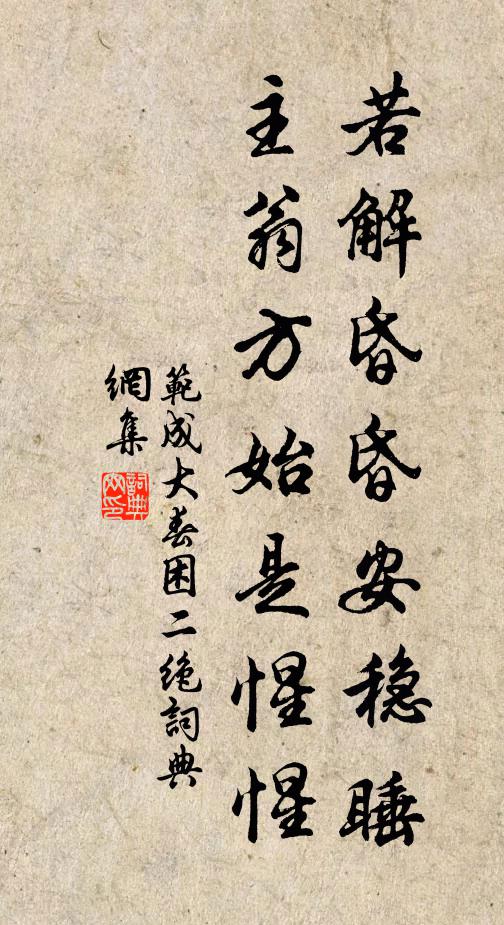 若解昏昏安稳睡
主翁方始是惺惺
範成大春困二绝詞典
網集
詞典
网印